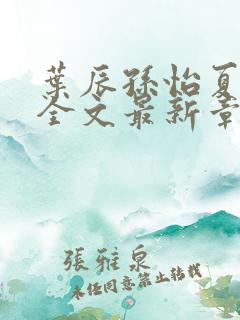 葉辰孫怡夏
全文最新章
張雅泉
未經同意禁止轉載